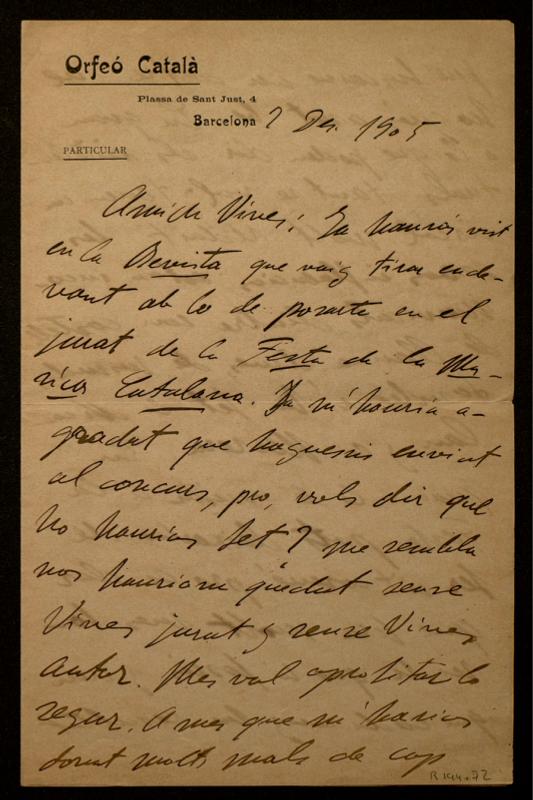 Orfeó Català
Plassa de Sant Just, 4
Barcelona 2 Des. 1905
PARTICULAR
Amich Vives: Ja hauràs vist
en la Revista que vaig tirar ende-
vant ab lo de posarte en el
jurat de la Festa de la Mú-
sica Catalana. Ja m'hauria a-
gradat que haguessis enviat
al concurs, pro, vols dir que
ho haurias fet? me sembla
nos hauriam quedat sense
Vives jurat y sense Vives
autor. Mes val aprofitar lo
segur. A mes que m'havias
donat molts mals de cap
R 144.72